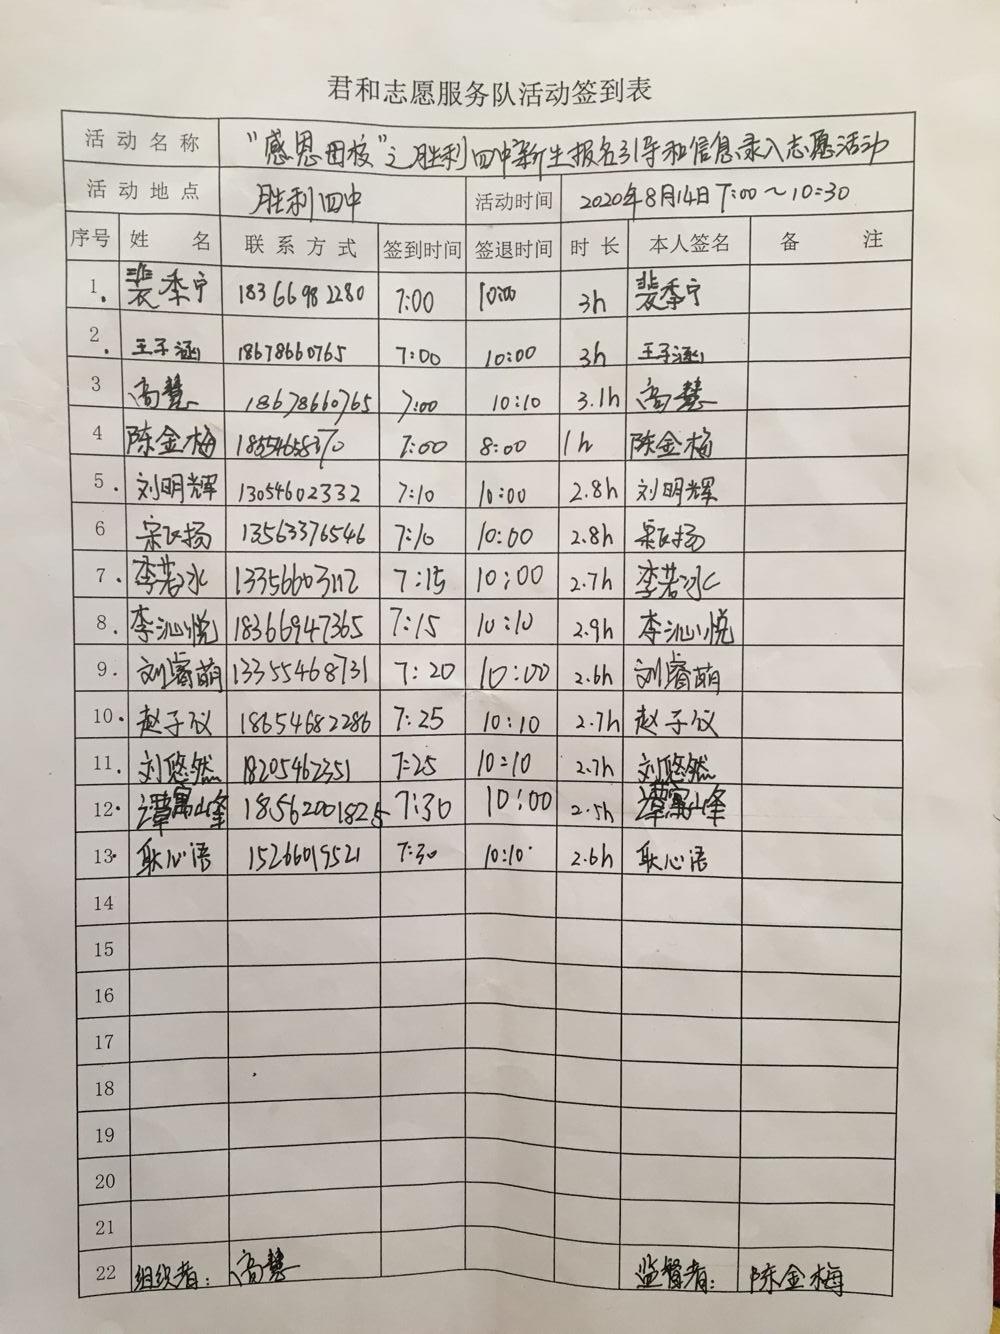 君和志愿服务队活动签到表
活动名称 "感恩母校"之胜利四中新生报名引导和信息录入志愿活动
活动地点 胜利四中 活动时间 2020年8月14日7:00～10:30
序号 姓名 联系方式 签到时间 签退时间 时长 本人签名 备注
1. 裴季宁 18366982280 7:00 10:00 3h 裴季宁
2. 王子涵 18678660765 7:00 10:00 3h 王子涵
3 高慧 18678660765 7:00 10:10 3.1h 高慧
4 陈金梅 7:00 8:00 1h 陈金梅
5. 刘明辉 13054602332 7:10 10:00 2.8h 刘明辉
6 13563376546 7:10 10:00 2.8h
7. 李若冰 13356603112 7:15 10:00 2.7h 李若冰
8. 李沁悦 18366947365 7:15 10:10 2.9h 李沁悦
9. 刘睿萌 13355468731 7:20 10:00 2.6h 刘睿萌
10. 赵子仪 18654682286 7:25 10:10 2.7h 赵子仪
11. 刘悠然 18205462351 7:25 10:10 2.7h 刘悠然
12. 谭富山峰 18562001825 7:30 10:00 2.5h 谭富山峰
13. 耿心语 15266019521 7:30 10:10 2.6h 耿心语
14
15
16
17
18
19
20
21
22 组织者: 高慧 监督者: 陈金梅